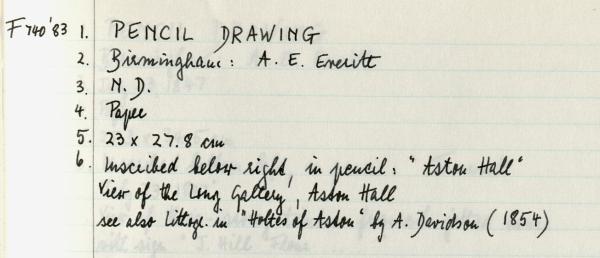 F740'83 1. PENCIL DRAWING
2. Birmingham: A. E. Everitt
3. N.D.
4. Paper
5. 23 x 27.8 cm
6. Inscribed below right, in pencil: "Aston Hall"
View of the Long Gallery, Aston Hall
see also Lithogr. in "Holtes of Aston" by A. Davidson (1854)